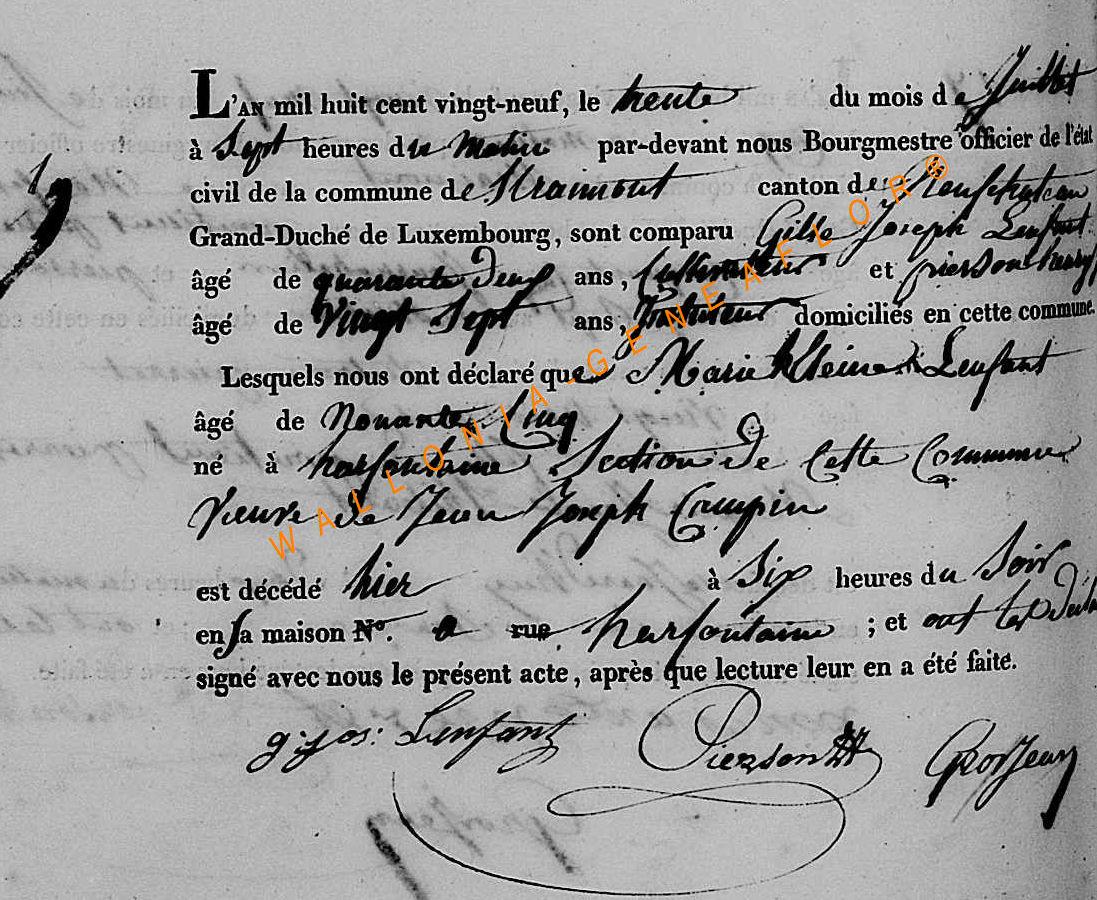 L'AN mil huit cent vingt-neuf, le trente du mois de Juillet
à Sept heures du Matin par-devant nous Bourgmestre officier de l'état
civil de la commune de Straimont canton de Neufchateau
Grand-Duché de Luxembourg, sont comparu Gille Joseph Lenfant
âgé de quarante Deux ans, Cultivateur et pierson henry
âgé de Vingt Sept ans, Cultivateur domiciliés en cette commune.
Lesquels nous ont déclaré que Marie Lenfant
âgé de Nonante Cinq
né à harfontaine Section de Cette Commune
Veuve de Jean Joseph Campin
est décédé hier à Six heures du Soir
en Sa maison N°. rue harfontaine ; et ont les
signé avec nous le présent acte, après que lecture leur en a été faite.
g: jos: Lenfant Pierson GrosJean
WALLONIA-GENEAFLOR®